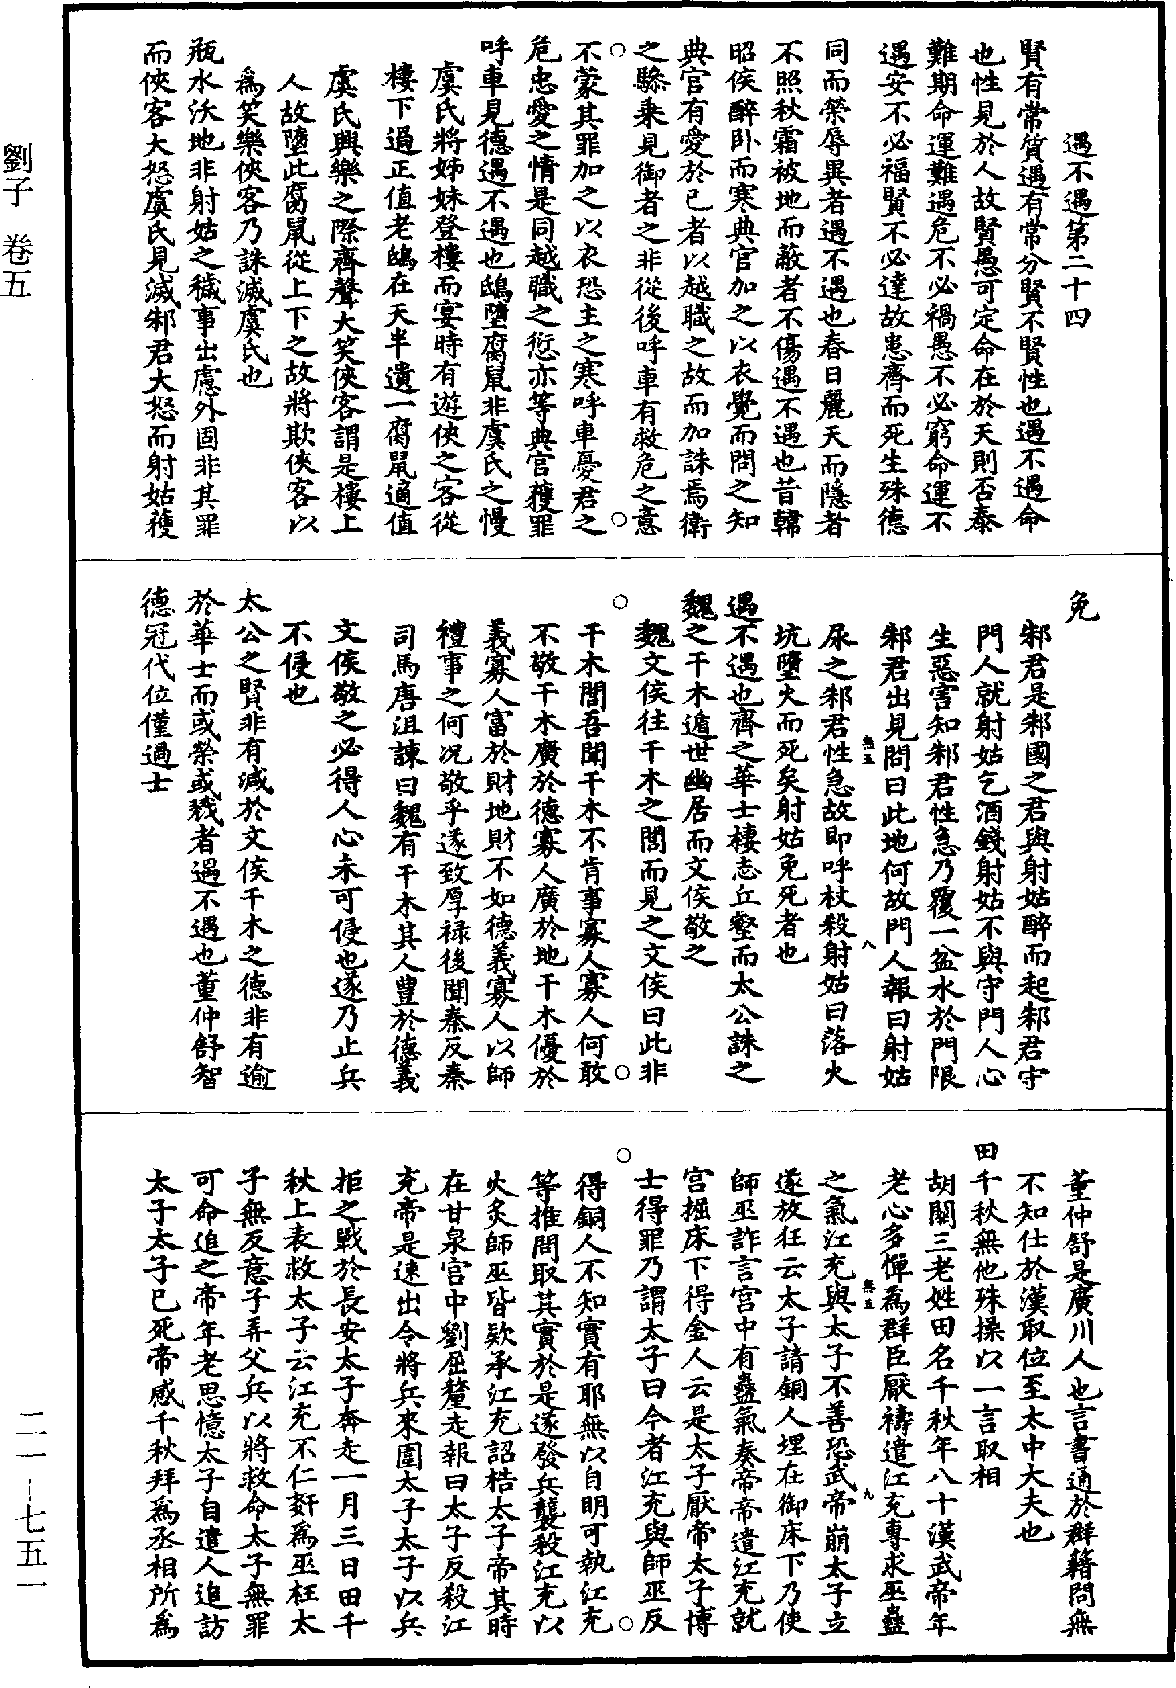 劉子　卷五
遇不遇第二十四
賢有常質遇有常分賢不賢性也遇不遇命
也性見於人故賢愚可定命在於天則否泰
難期命運難遇危不必禍愚不必窮命運不
遇安不必福賢不必達故患齊而死生殊德
同而榮辱異者遇不遇也春日麗天而隱者
不照秋霜被地而蔽者不傷遇不遇也昔韓
昭侯醉卧而寒典官加之以衣覺而問之知
典官有愛於已者以越職之故而加誅焉衛
之驂乘見御者之非從後呼車有救危之意
不蒙其罪加之以衣恐主之寒呼車憂君之
危忠愛之情是同越職之愆亦等典官獲罪
呼車見德遇不遇也鴟墮腐鼠非虞氏之慢
虞氏將姊妹登樓而宴時有遊俠之客從
樓下過正值老鴟在天半遺一腐鼠適值
虞氏興樂之際齊聲大笑俠客謂是樓上
人故墮此腐鼠從上下之故將欺俠客以
為笑樂俠客乃誅滅虞氏也
瓶水沃地非射姑之穢事出慮外固非其罪
而俠客大怒虞氏見滅邾君大怒而射姑獲
免
邾君是邾國之君與射姑醉而起邾君守
門人就射姑乞酒錢射姑不與守門人心
生惡害知邾君性急乃覆一盆水於門限
邾君出見問曰此地何故門人報曰射姑
尿之邾君性急故即呼杖殺射姑曰落火
坑墮火而死矣射姑免死者也
遇不遇也齊之華士棲志丘壑而太公誅之
魏之干木遁世幽居而文侯敬之
魏文侯往干木之閭而見之文侯曰此非
干木閭吾聞干木不肯事寡人寡人何敢
不敬干木廣於德寡人廣於地干木優於
義寡人富於財地財不如德義寡人以師
禮事之何況敬乎遂致厚祿後聞秦反秦
司馬唐沮諫曰魏有干木其人豐於德義
文侯敬之必得人心未可侵也遂乃止兵
不侵也
太公之賢非有減於文侯干木之德非有逾
於華士而或榮或戮者遇不遇也董仲舒智
德冠代位僅過士
董仲舒是廣川人也言書通於群籍問無
不知仕於漢取位至太中大夫也
田千秋無他殊操以一言取相
胡關三老姓田名千秋年八十漢武帝年
老心多憚為群臣厭禱遣江充專求巫蠱
之氣江充與太子不善恐武帝崩太子立
遂放狂云太子請銅人埋在御床下乃使
師巫詐言宮中有蠱氣奏帝帝遣江充就
宮掘床下得金人云是太子厭帝太子博
士得罪乃謂太子曰今者江充與師巫反
得銅人不知實有耶無以自明可執江充
等推問取其實於是遂發兵襲殺江充以
火炙師巫皆欵承江充詔梏太子帝其時
在甘泉宮中劉屈氂走報曰太子反殺江
充帝是速出令將兵來圍太子太子以兵
拒之戰於長安太子奔走一月三日田千
秋上表救太子云江充不仁奸為巫枉太
子無反意子弄父兵以將救命太子無罪
可命追之帝年老思憶太子自遣人追訪
太子太子已死帝感千秋拜為丞相所為
二一—七五一